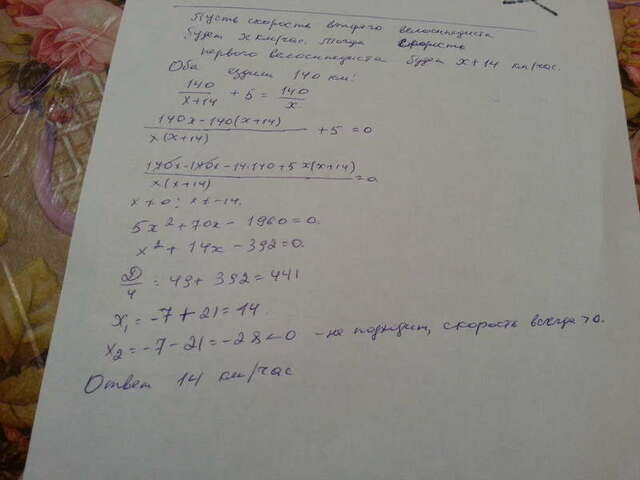 Пусть скорость второго велосипедиста
будет x км/час. Тогда скорость
первого велосипедиста будет x+14 км/час.
Оба ездили 140 км:
140/x+14 + 5 = 140/x
140x-140(x+14)/x(x+14) + 5 = 0
140x-140x-14·140+5x(x+14)/x(x+14) = 0
x≠0; x≠-14.
5x²+70x-1960=0.
x²+14x-392=0.
D/4 = 49+392=441
x₁=-7+21=14.
x₂=-7-21=-28<0 - не подходит, скорость всегда >0.
Ответ 14 км/час